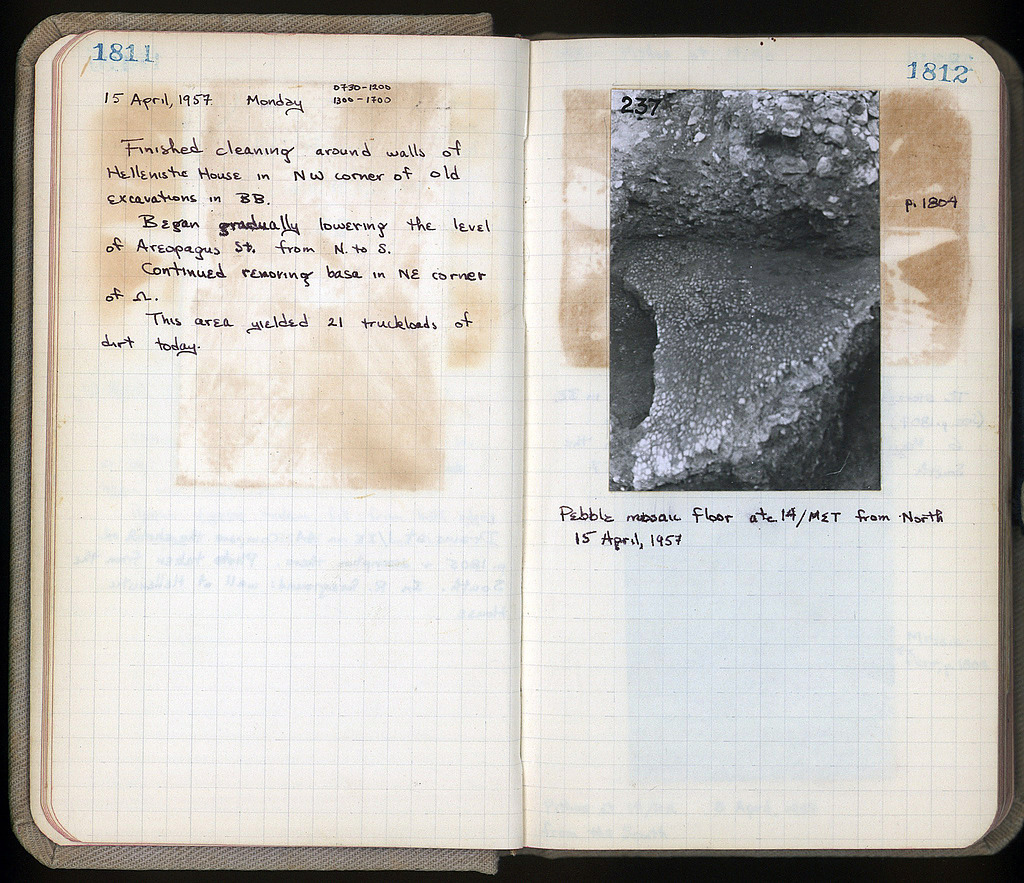 1811
15 April, 1957 Monday 0730-1200
1300-1700
Finished cleaning around walls of
Hellenistic House in NW corner of old
excavations in BB.
Began gradually lowering the level
of Areopagus St. from N. to S.
Continued removing basa in NE corner
of Ω.
This area yielded 21 truckloads of
dirt today.
1812
237
p. 1804
Pebble mosaic floor at 14/MET from North
15 April, 1957